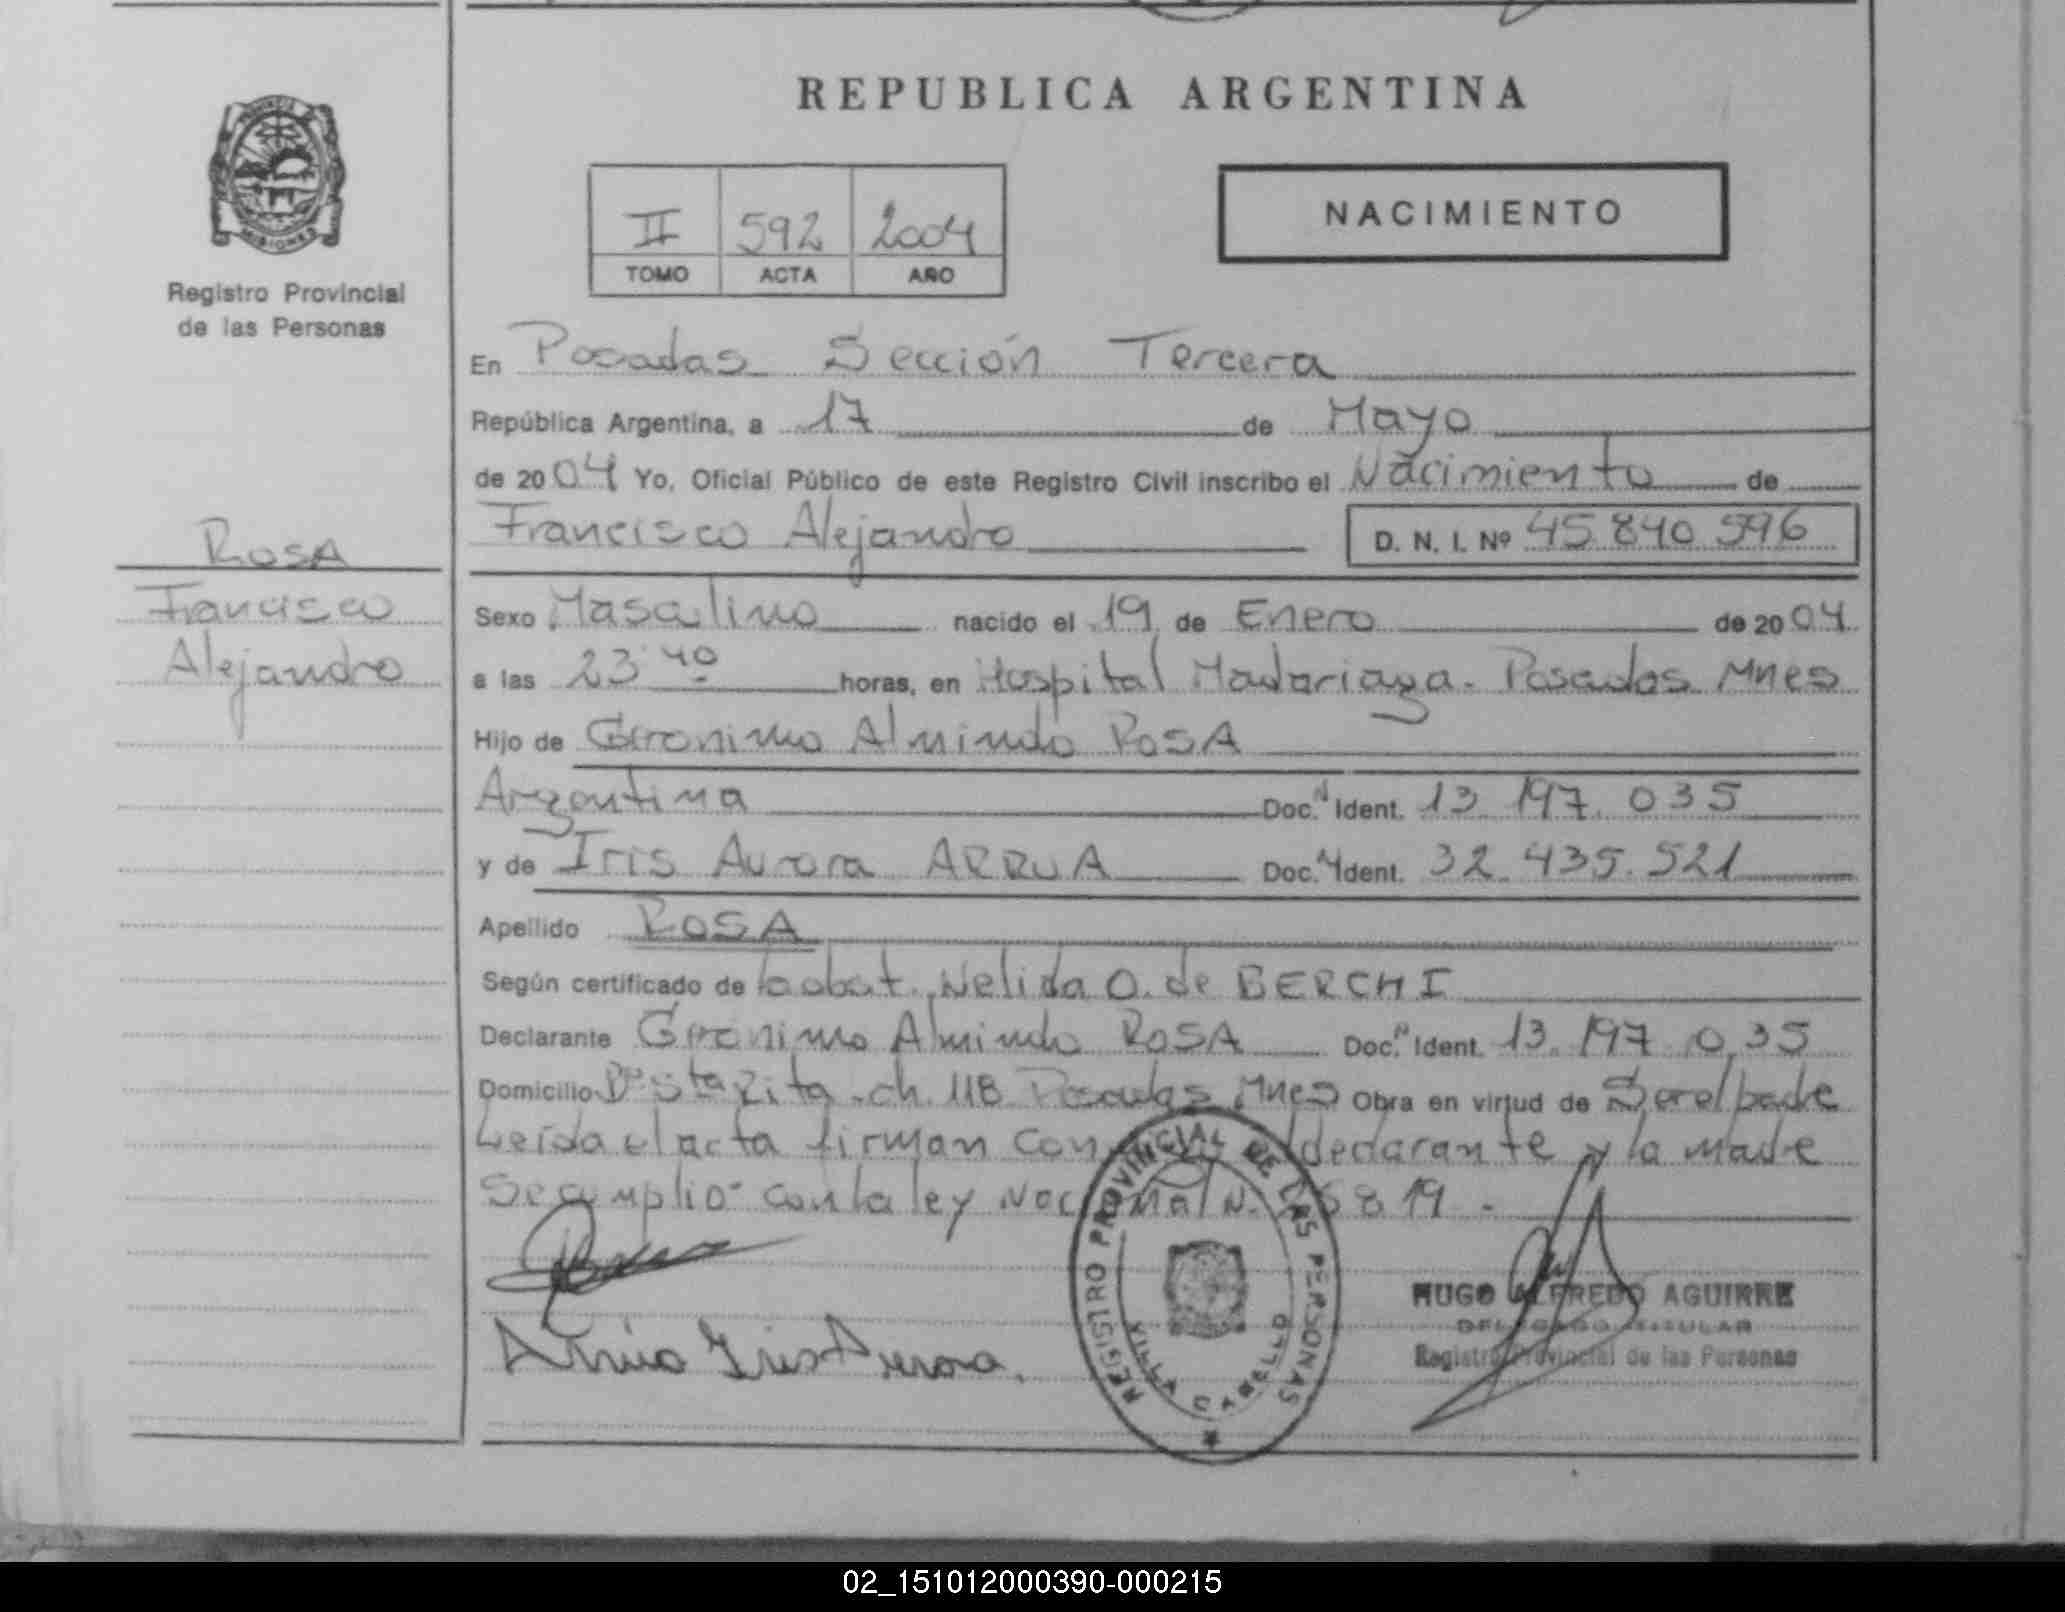 REPUBLICA ARGENTINA
II 592 2004
TOMO ACTA AÑO
NACIMIENTO
MISIONES
Registro Provincial
de las Personas
ROSA
Francisco
Alejandro
En Posadas Sección Tercera
República Argentina, a 17 de Mayo
de 2004 Yo, Oficial Público de este Registro Civil inscribo el Nacimiento de
Francisco Alejandro D. N. I. Nº 45 840 596
Sexo Masculino nacido el 19 de Enero de 2004
a las 23 40 horas, en Hospital Madariaga. Posadas Mnes
Hijo de Geronimo Almindo ROSA
Argentina Doc. N Ident. 13 197. 035
y de Iris Aurora ARRUA Doc. N Ident. 32. 435. 521
Apellido ROSA
Según certificado de obst. Nelida O. de BERCHI
Declarante Geronimo Almindo ROSA Doc. N Ident. 13. 197 035
Domicilio Bº Sta Rita ch. 118 Posadas Mnes Obra en virtud de Ser el padre
Leída el acta firman con declarante y la madre
Se cumplio con la ley Nacional N. 819 -
Arrua Iris Aurora.
REGISTRO PROVINCIAL DE LAS PERSONAS
VILLA CABELLO
HUGO ALFREDO AGUIRRE
DELEGADO TITULAR
Registro Provincial de las Personas
02_151012000390-000215